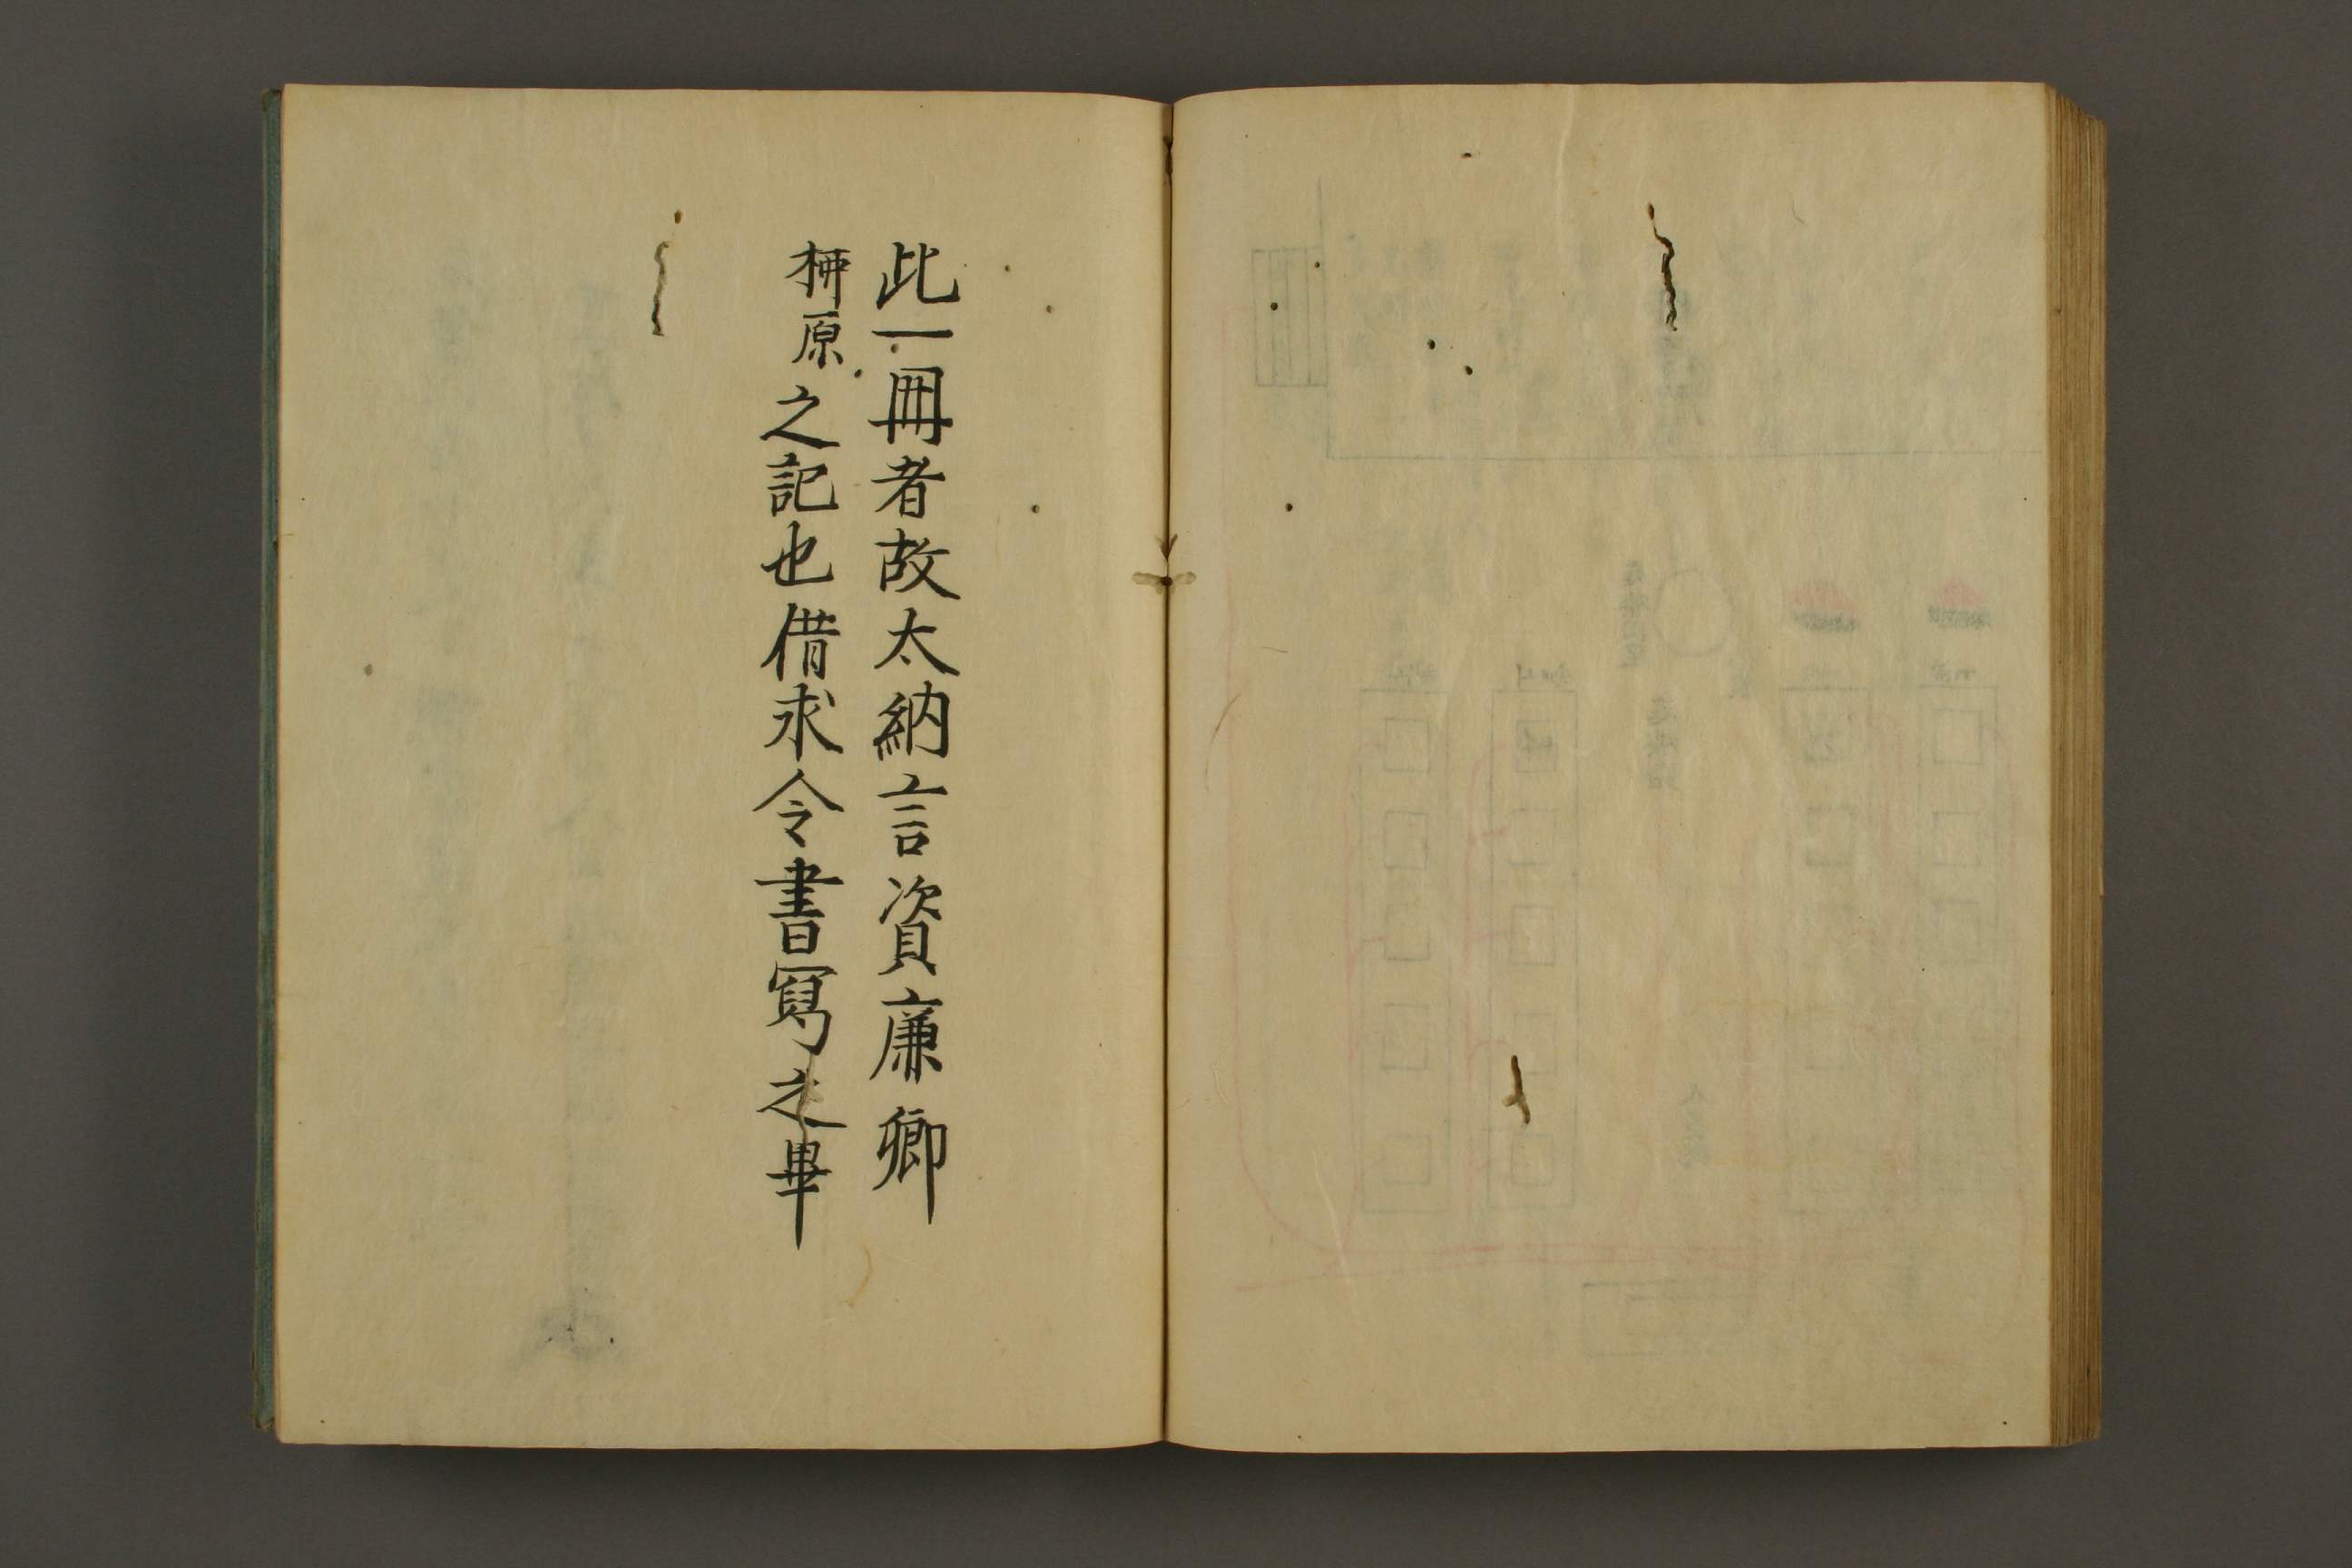 此一冊者故太納言資廉卿
柳原之記也借求令書寫之畢